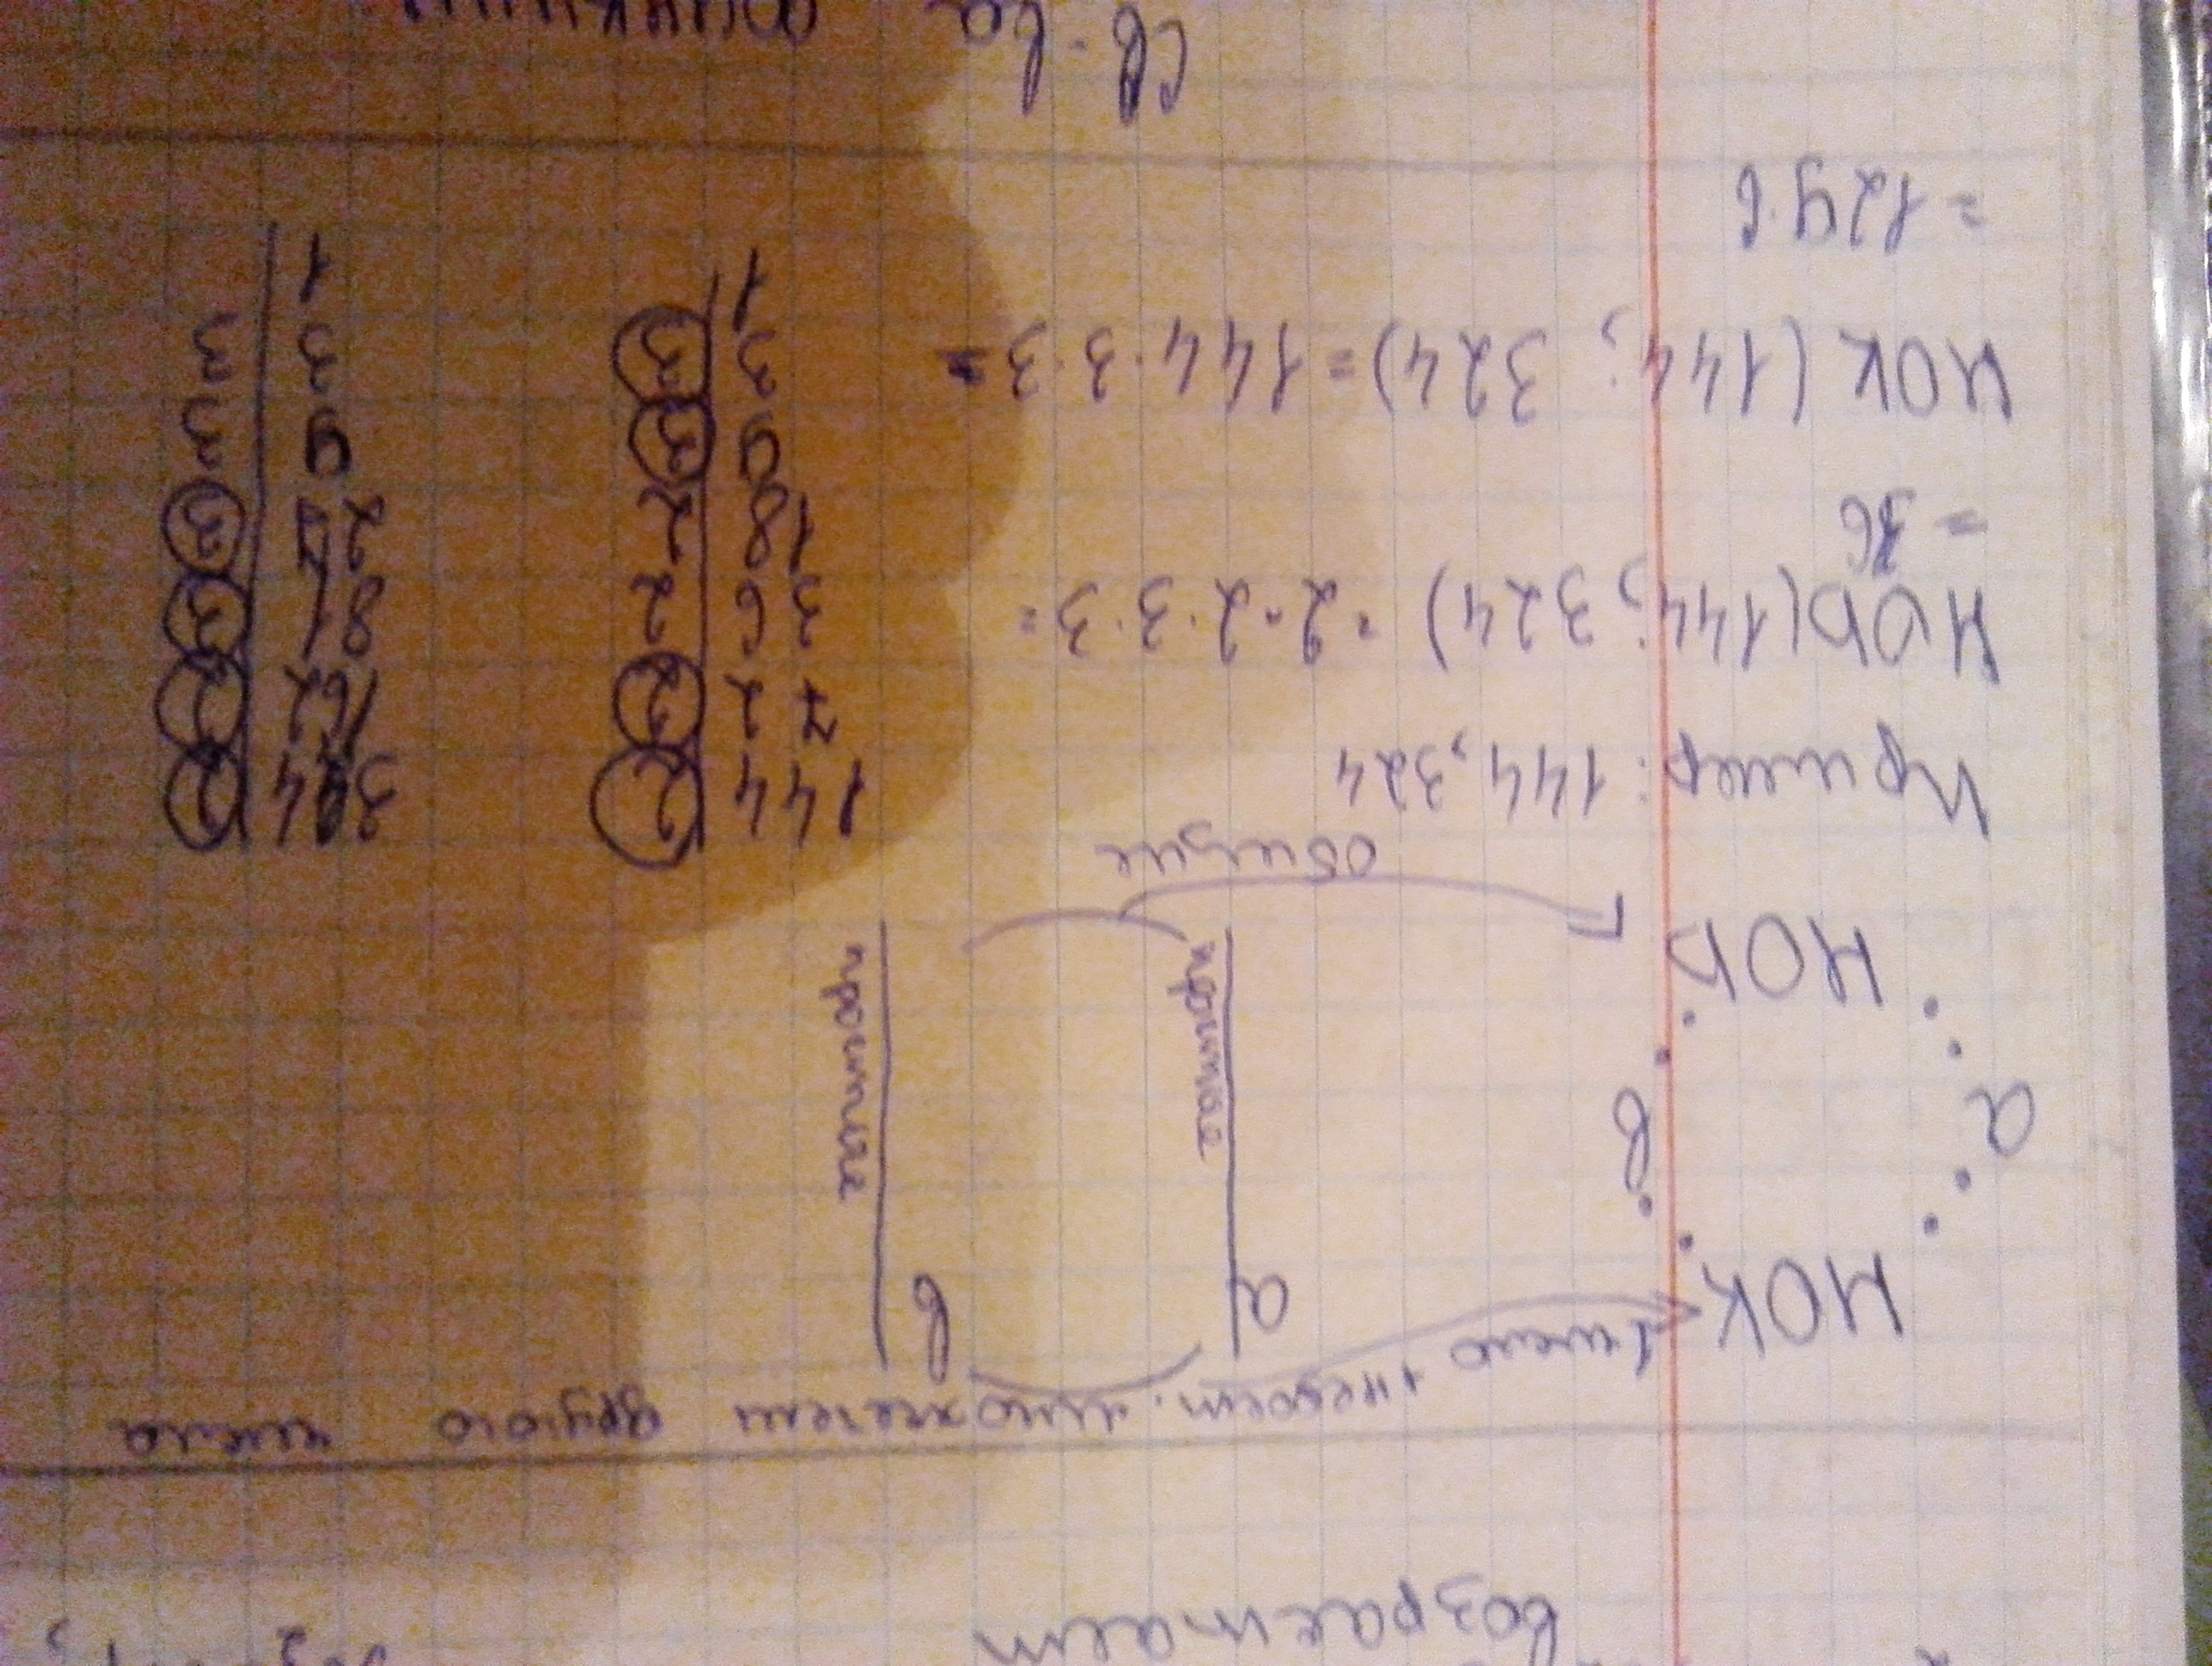 возрастает
1 число недост. множители другого числа
НОК
a b
a в
простые простые
НОД
общие
Пример: 144, 324
НОД (144; 324) = 2·2·3·3=
= 36
НОК (144; 324) = 144·3·3=
= 1296
144 2
72 2
36 2
18 2
9 3
3 3
1
324 2
162 2
81 3
27 3
9 3
3 3
1
Св-ва